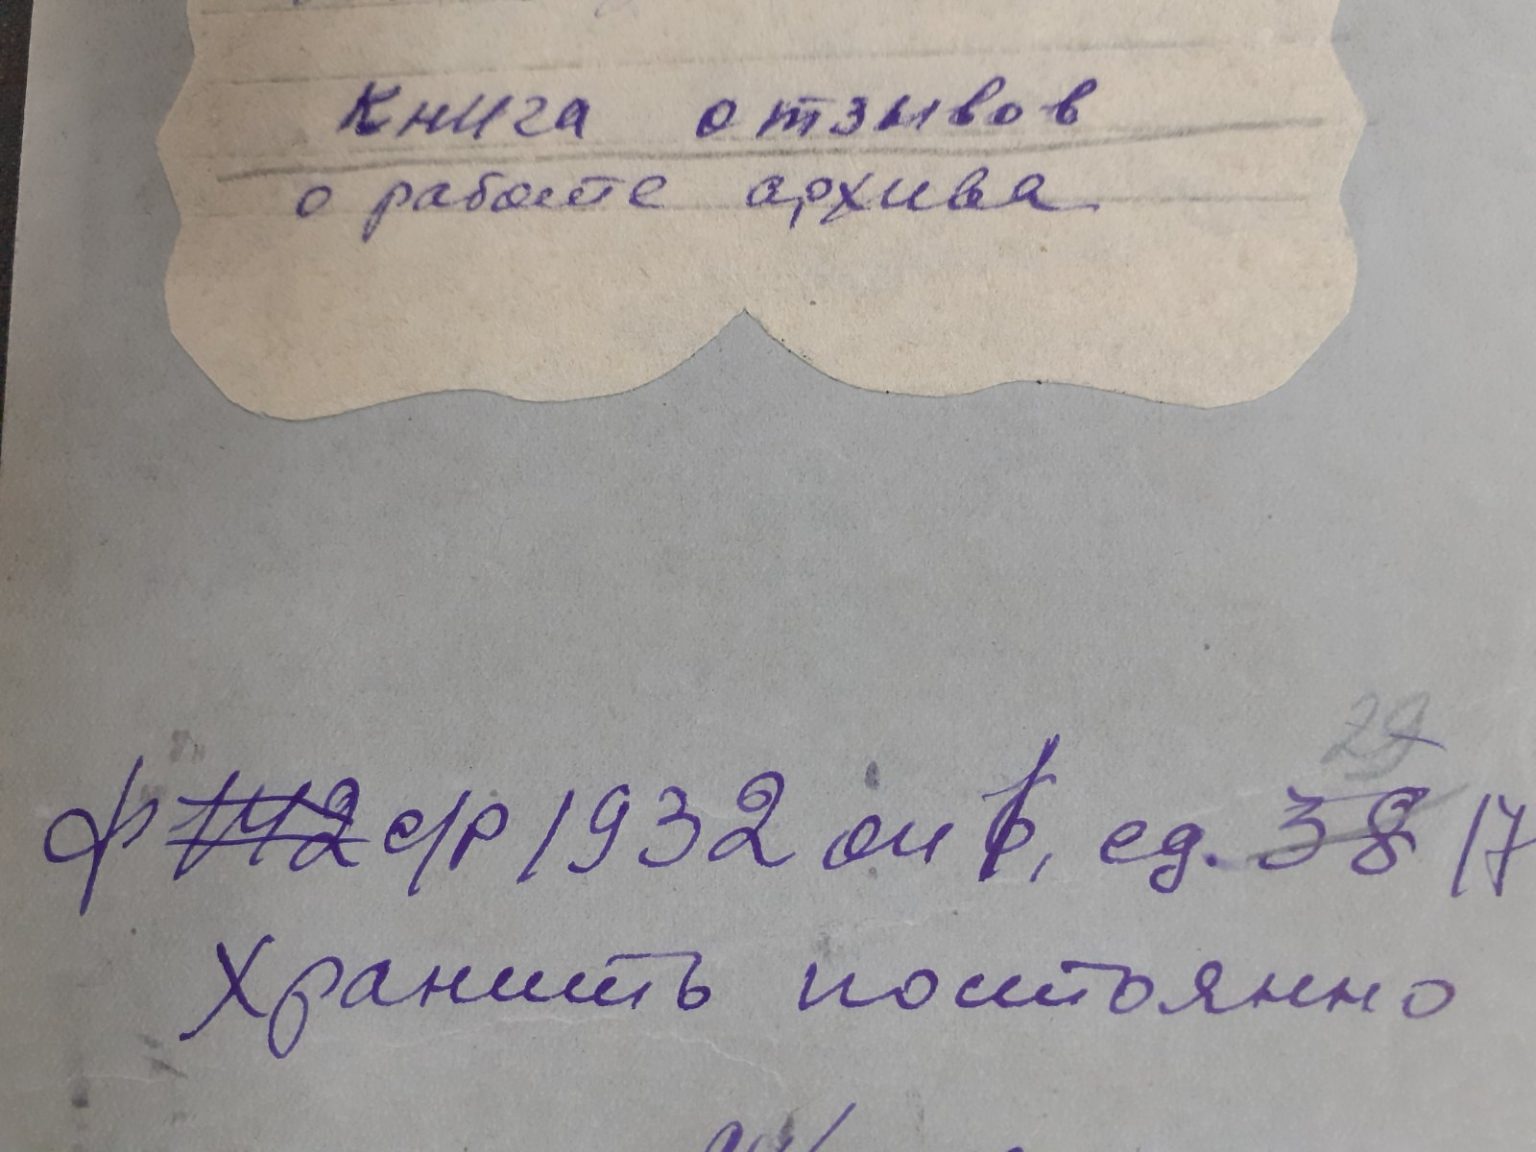 Книга отзывов
о работе архива
29
ф 1142 ф 1932 оп 1, ед. 38 17
Хранить постоянно